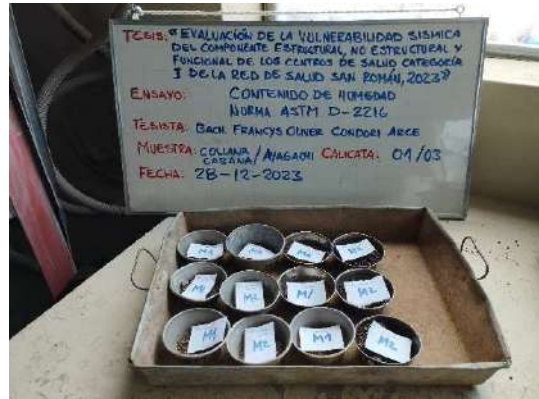 TESIS: "EVALUACIÓN DE LA VULNERABILIDAD SISMICA
DEL COMPONENTE ESTRUCTURAL, NO ESTRUCTURAL Y
FUNCIONAL DE LOS CENTROS DE SALUD CATEGORÍA
I DE LA RED DE SALUD SAN ROMÁN, 2023"
ENSAYO: CONTENIDO DE HUMEDAD
NORMA ASTM D-2216
TESISTA: BACH. FRANCYS OLIVER CONDORI ARCE
MUESTRA: COLLANA CABANA/AYAGACHI CALICATA: 01/03
FECHA: 28-12-2023
M1 M2 M1 M2
M1 M2 M1 M2